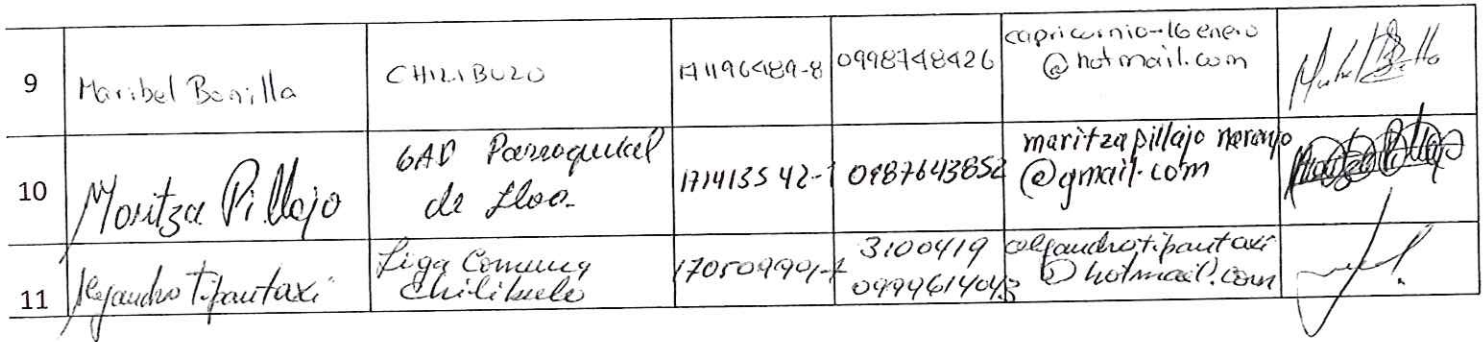 9 Maribel Bonilla CHILIBULO 171196489-8 0998748426 capricornio-16enero
@hotmail.com
10 Maritza Pillajo GAD Parroquial
de Lloa. 171413542-1 0987643852 maritzapillajo naranjo
@gmail.com
11 Alejandro Tipantaxi Liga Comuna
Chilibulo 170509901-7 3100419
0999614043 alejandrotipantaxi
@hotmail.com